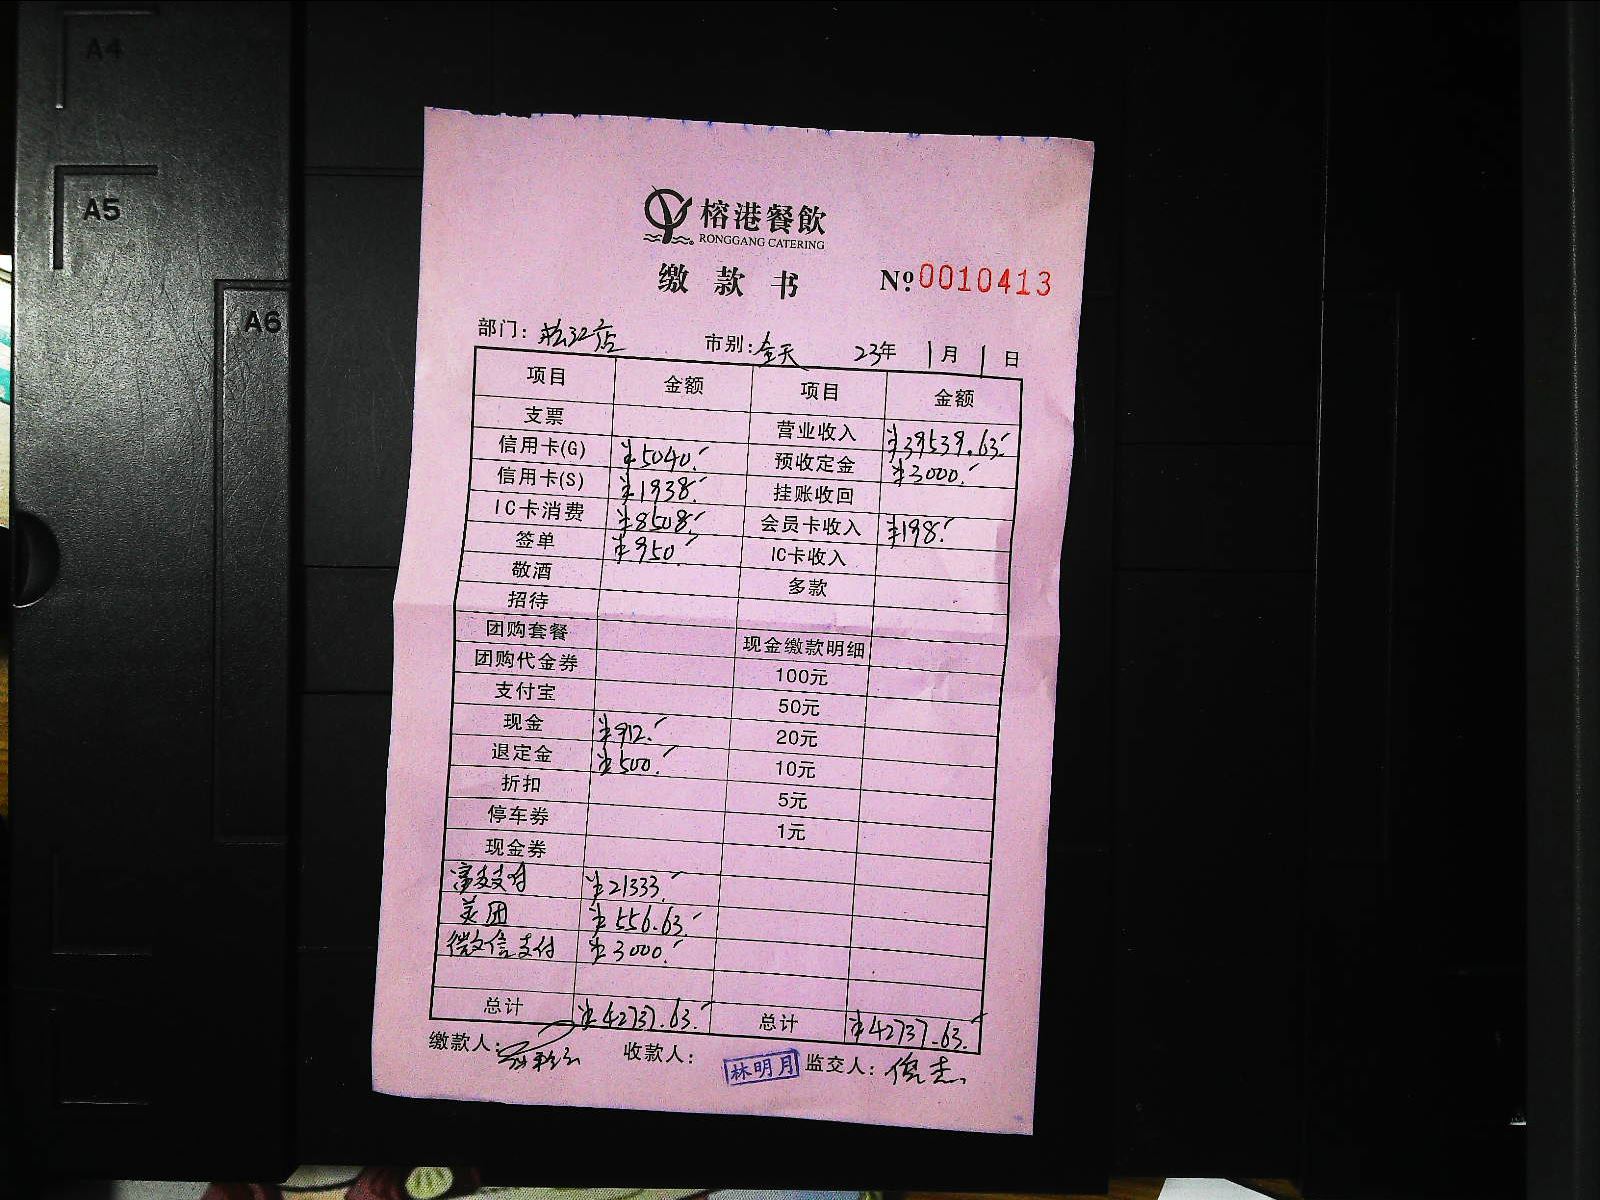 A4
A5
A6
榕港餐飲
RONGGANG CATERING
缴款书 №0010413
部门: 松江店 市别: 全天 23年 1月 1日
项目 金额 项目 金额
支票 营业收入 ¥39539.63
信用卡(G) ¥5040. 预收定金 ¥3000.
信用卡(S) ¥1938. 挂账收回
IC卡消费 ¥8508. 会员卡收入 ¥198.
签单 ¥950. IC卡收入
敬酒 多款
招待
团购套餐 现金缴款明细
团购代金券 100元
支付宝 50元
现金 ¥912. 20元
退定金 ¥500. 10元
折扣 5元
停车券 1元
现金券
支付 ¥21333.
美团 ¥556.63.
微信支付 ¥3000.
总计 ¥42737.63. 总计 ¥42737.63.
缴款人: 收款人: 林明月 监交人: